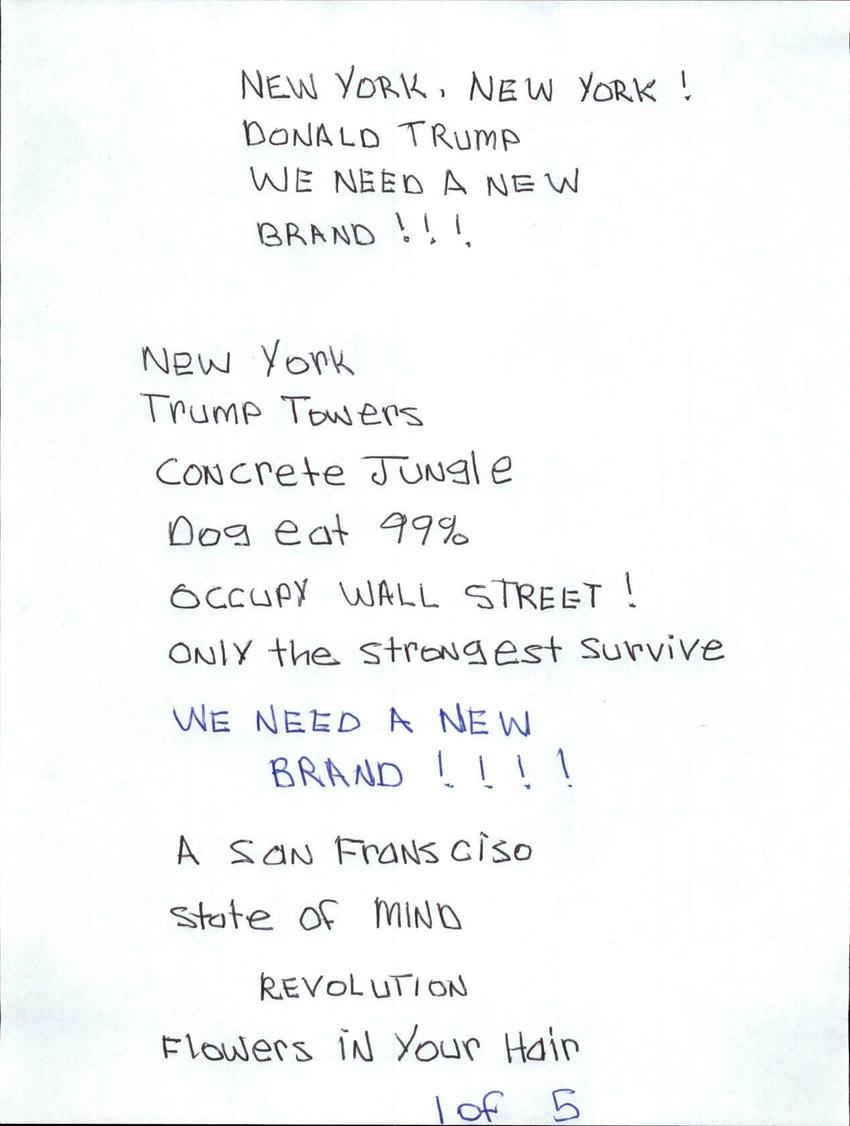 NEW YORK, NEW YORK !
DONALD TRUMP
WE NEED A NEW
BRAND ! ! !
New York
Trump Towers
Concrete Jungle
Dog eat 99%
OCCUPY WALL STREET !
ONLY the strongest survive
WE NEED A NEW
BRAND ! ! ! !
A San Fransciso
State of MIND
REVOLUTION
Flowers in Your Hair
1 of 5